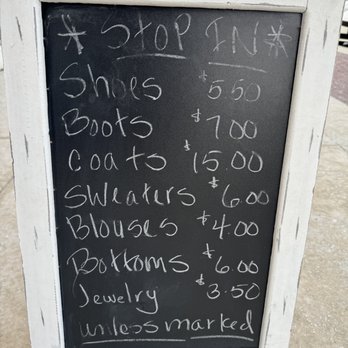 * STOP IN *
Shoes $5.50
Boots $7.00
Coats $15.00
Sweaters $6.00
Blouses $4.00
Bottoms $6.00
Jewelry $3.50
unless marked